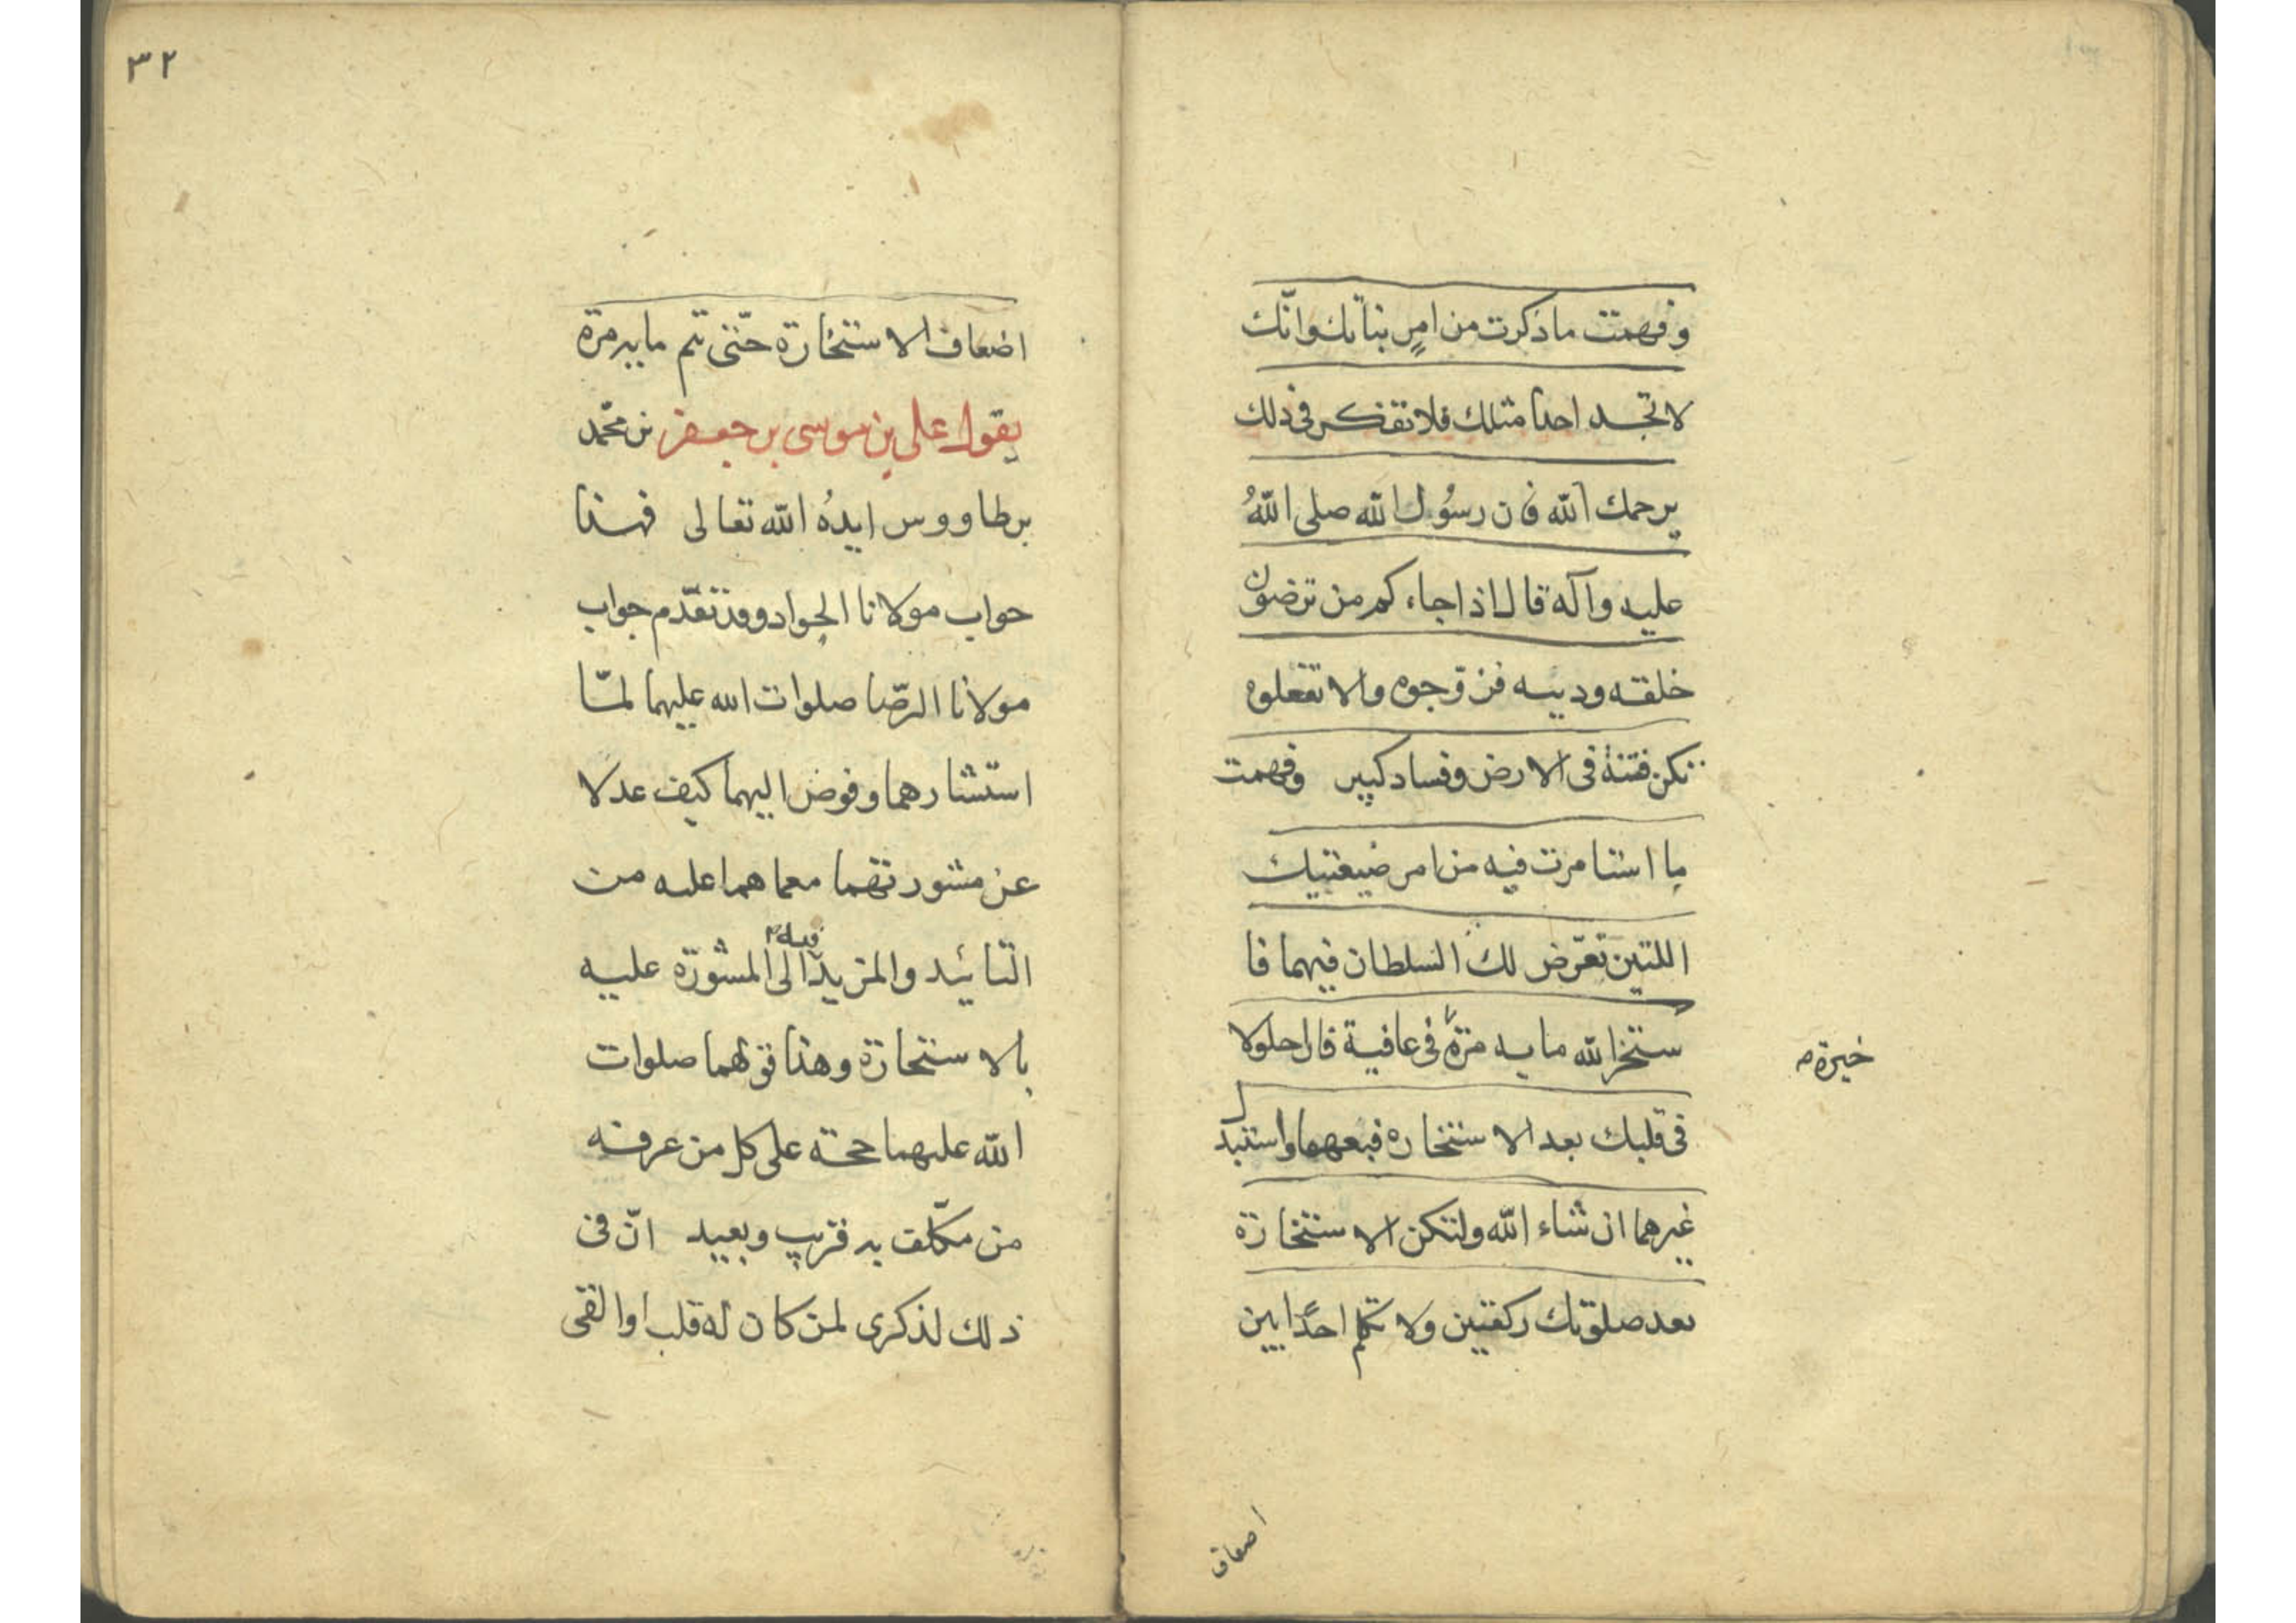 وفهمت ما ذكرت من امر بناتك وانّك
لا تجد احدا مثلك فلا تفكر فى ذلك
يرحمك الله فان رسُول الله صلى اللهُ
عليه وآله قال اذا جاءكم من ترضون
خلقه ودينه فزوّجوه والا تفعلوه
تكن فتنة فى الارض وفساد كبير وفهمت
ما استامرت فيه من امر ضيعتيك
اللتين تعرّض لك السلطان فيهما فا
ستخر الله مايه مرّة فى عافية فان احلولا
خيرة م
فى قلبك بعد الاستخاره فبعهما واستبد
ل
غيرهما ان شاء الله ولتكن الاستخارة
بعد صلوتك ركعتين ولا تكلم احدًا بين
اضعاف
٣٢
اضعاف الاستخارة حتّى تتم مايه مرّة
يقول على بن موسى بن جعفر بن محمّد
بن طاووس ايدهُ الله تعالى فهذا
جواب مولانا الجواد وقد تقدّم جواب
مولانا الرضا صلوات الله عليهما لمّا
استشارهما وفوض اليهما كيف عدلا
عن مشورتهما مع ما هما عليه من
فيه م
التائيد والمزيد الى المشورة عليه
بالاستخارة وهذا قولهما صلوات
الله عليهما حجة على كل من عرفه
من مكلّف به قريب وبعيد انّ فى
ذلك لذكرى لمن كان له قلب او القى